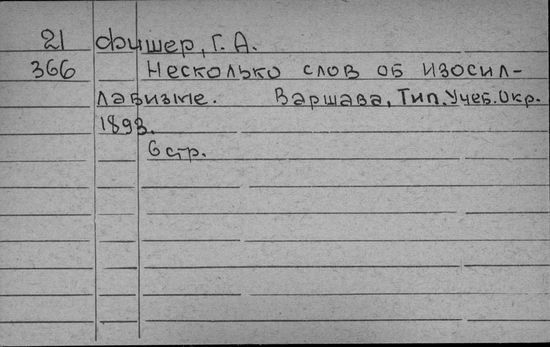 21 Фишер, Г. А.
366 Несколько слов об изосил-
лабизме. Варшава, Тип. Учеб. Окр.
1893.
6 стр.